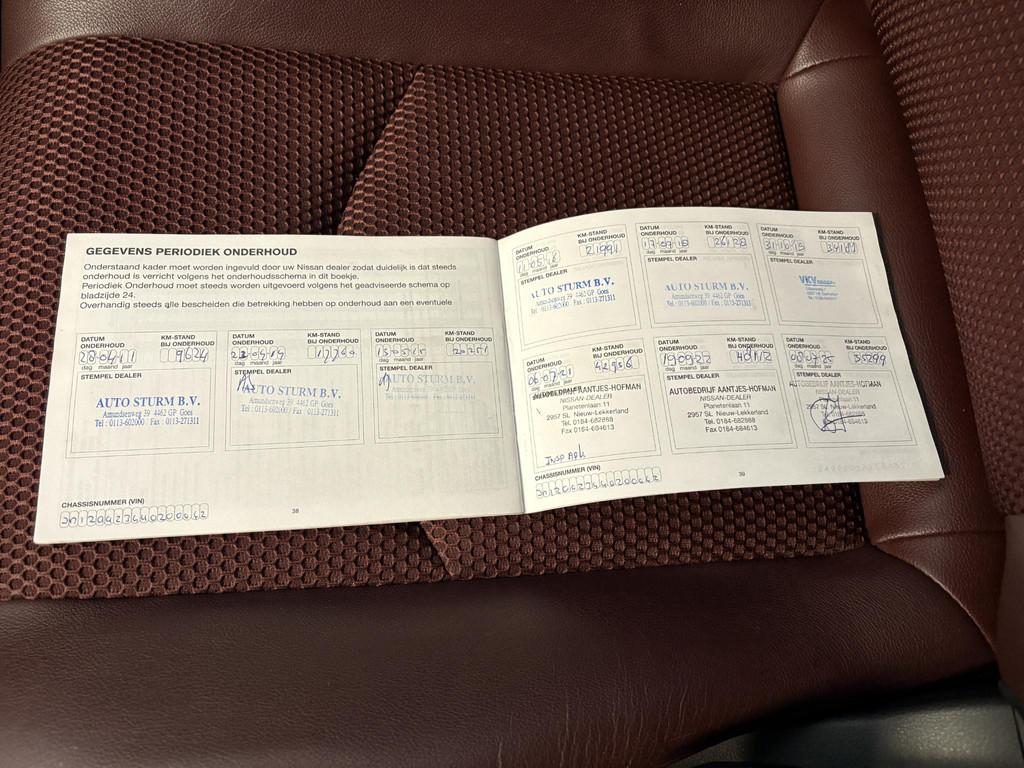 GEGEVENS PERIODIEK ONDERHOUD
Onderstaand kader moet worden ingevuld door uw Nissan dealer zodat duidelijk is dat steeds
onderhoud is verricht volgens het onderhoudsschema in dit boekje.
Periodiek Onderhoud moet steeds worden uitgevoerd volgens het geadviseerde schema op
bladzijde 24.
Overhandig steeds alle bescheiden die betrekking hebben op onderhoud aan een eventuele
DATUM ONDERHOUD
KM-STAND BIJ ONDERHOUD
9624
dag maand jaar
STEMPEL DEALER
AUTO STURM B.V.
Amundsenweg 39 4462 GP Goes
Tel : 0113-602000 / Fax : 0113-271311
DATUM ONDERHOUD
KM-STAND BIJ ONDERHOUD
dag maand jaar
STEMPEL DEALER
AUTO STURM B.V.
Amundsenweg 39 4462 GP Goes
Tel : 0113-602000 Fax : 0113-271311
DATUM ONDERHOUD
KM-STAND BIJ ONDERHOUD
dag maand jaar
STEMPEL DEALER
AUTO STURM B.V.
Amundsenweg 39 4462 GP Goes
Tel : 0113-602000 Fax : 0113-271311
CHASSISNUMMER (VIN)
38
DATUM ONDERHOUD
KM-STAND BIJ ONDERHOUD
21991
dag maand jaar
STEMPEL DEALER
AUTO STURM B.V.
Amundsenweg 39 4462 GP Goes
Tel : 0113-602000 / Fax : 0113-271311
DATUM ONDERHOUD
KM-STAND BIJ ONDERHOUD
17 07 18
26128
dag maand jaar
STEMPEL DEALER
AUTO STURM B.V.
Amundsenweg 39 4462 GP Goes
Tel : 0113-602000 / Fax : 0113-271311
DATUM ONDERHOUD
KM-STAND BIJ ONDERHOUD
dag maand jaar
STEMPEL DEALER
VKV
DATUM ONDERHOUD
KM-STAND BIJ ONDERHOUD
06 07 21
42956
dag maand jaar
AUTOBEDRIJF AANTJES-HOFMAN
NISSAN-DEALER
Planetenlaan 11
2957 SL Nieuw-Lekkerland
Tel. 0184-682868
Fax 0184-684613
DATUM ONDERHOUD
KM-STAND BIJ ONDERHOUD
19 09 22
dag maand jaar
STEMPEL DEALER
AUTOBEDRIJF AANTJES-HOFMAN
NISSAN-DEALER
Planetenlaan 11
2957 SL Nieuw-Lekkerland
Tel. 0184-682868
Fax 0184-684613
DATUM ONDERHOUD
KM-STAND BIJ ONDERHOUD
dag maand jaar
STEMPEL DEALER
AUTOBEDRIJF AANTJES-HOFMAN
NISSAN-DEALER
Planetenlaan 11
2957 SL Nieuw-Lekkerland
Tel. 0184-682868
Fax 0184-684613
CHASSISNUMMER (VIN)
39